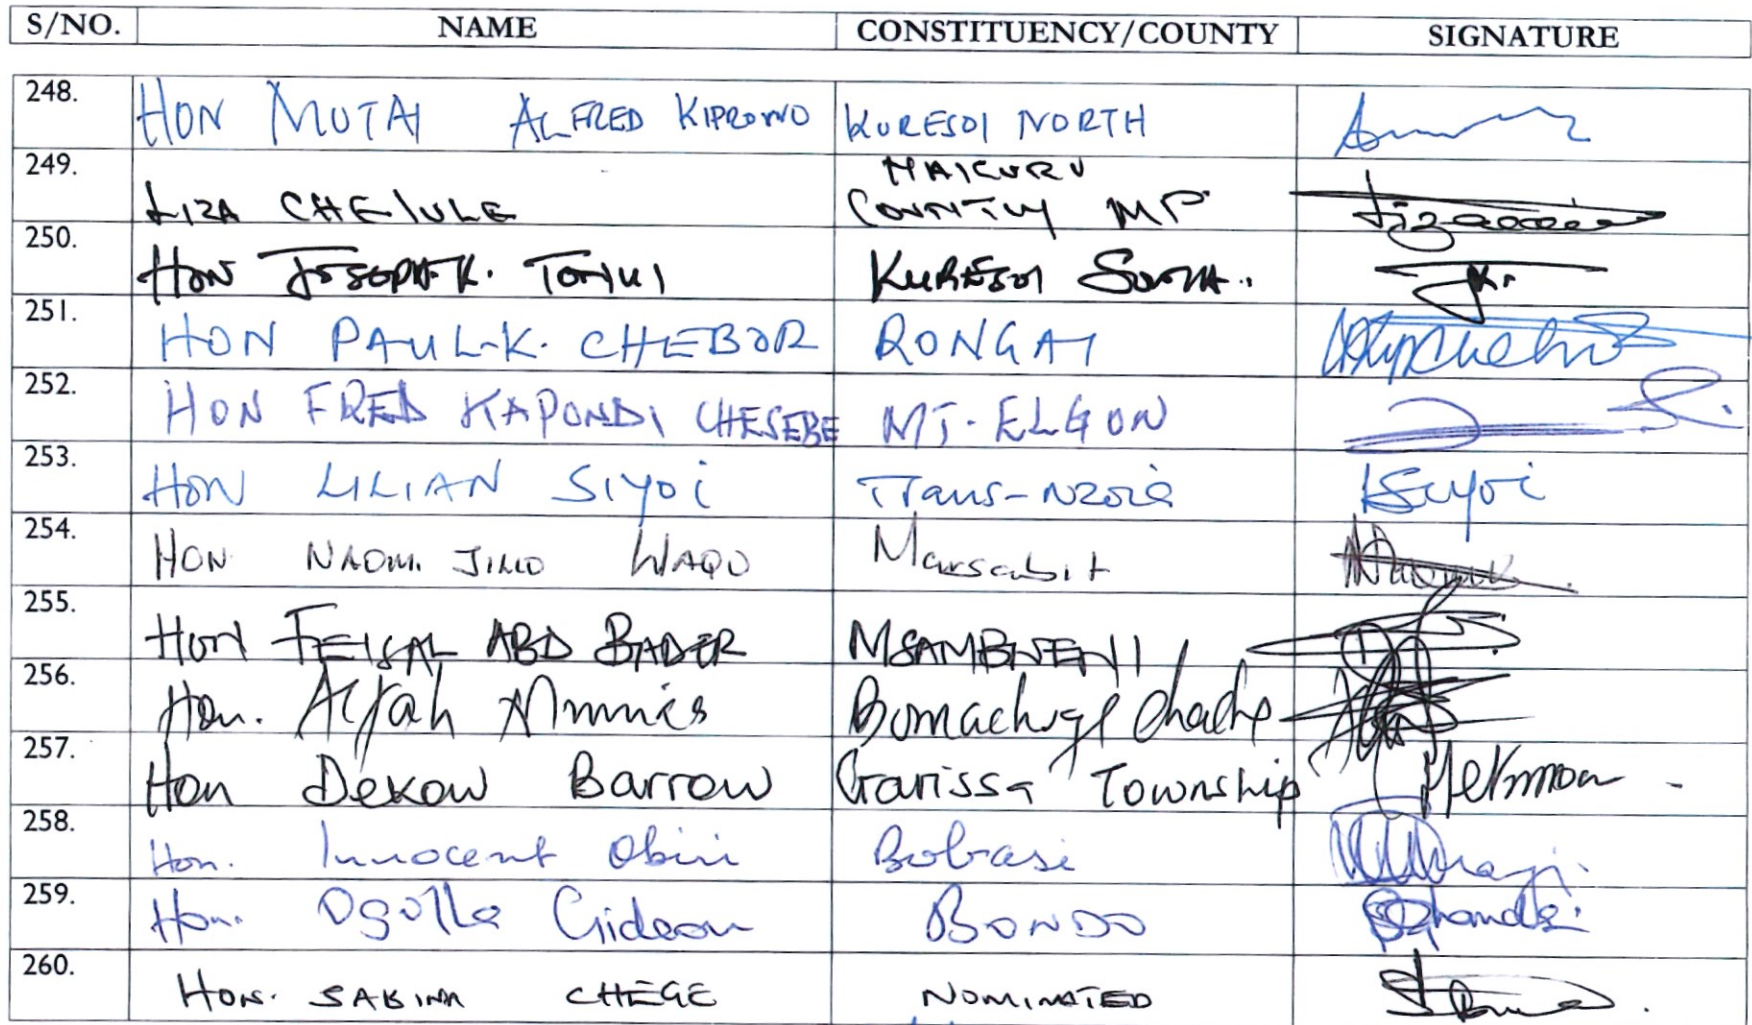 S/NO. NAME CONSTITUENCY/COUNTY SIGNATURE
248. HON MUTAI ALFRED KIPRONO KURESOI NORTH
249. LIZA CHELULE NAKURU
COUNTY MP
250. HON JOSEPH K. TONUI KURESOI SOUTH.
251. HON PAUL K. CHEBOR RONGAI
252. HON FRED KAPONDI CHESEBE MT. ELGON
253. HON LILIAN SIYOI Trans-Nzoia Siyoi
254. HON NAOMI JILLO WAQO Marsabit
255. HON FEISAL ABD BADER MSAMBWENI
256. Hon. Alfah Miruka Bomachoge Chache
257. Hon Dekow Barrow Garissa Township
258. Hon. Innocent Obiri Bobasi
259. Hon. Ogolla Gideon BONDO
260. HON. SABINA CHEGE NOMINATED